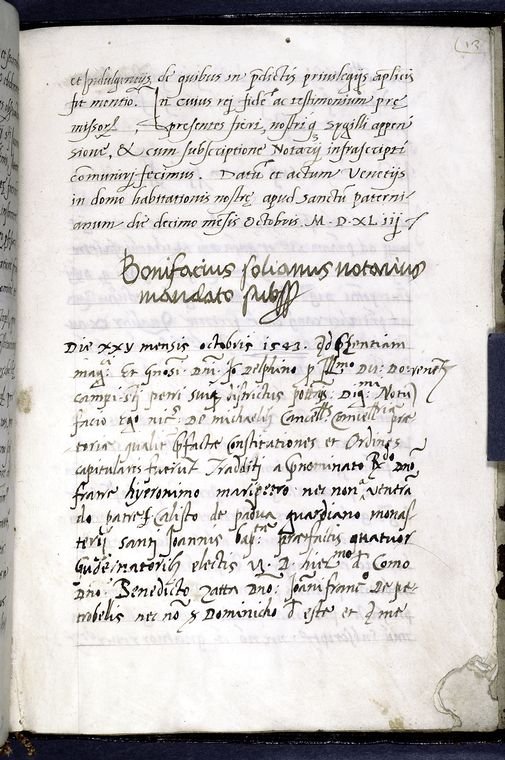 13
et Indulgencijs, de quibus in p̄dictis privilegijs ap̄licis
fit mentio. In cuius rej fidē ac testimonium pre
missorꝫ, presentes fieri, nostriqꝫ sygilli appen
sione, & cum subscriptione Notarij infrascripti
comuniri fecimus. Datū et actum Venetijs
in domo habitationis nostrę apud sanctū paterni-
anum die decimo mēsis Octobris. M. D. XL iij
Bonifacius solianus notarius
mandato subss
Die xxv mensis octobris 1543. Ad p̄sentiam
mag.ci Et Gnosi. Dni. Jo Delphino p Ill.mo Du. Do. venetꝫ
campi stj petri suiqꝫ districtus pottis. Dig.ma Notū
facio ego nic.s De michaelis Cancell.s Cancell.riæ præ
toriæ qualit p̄factæ Constitationes et Ordines
capitulares fuerūt Tradditj a p̄nominato R.do dno
fratre hyeronimo maripetro nec non ventra
do patre f. Calisto de padua guardiano monas
terij santj Joannis bap.te præfactis quatuor
Gubernatoribꝫ electis vꝫ. D. hier.mo d. Como
Dno. Benedicto zatta Dno. Joāni franc.o De pe
trobelis nec nō s Dominicho d este et